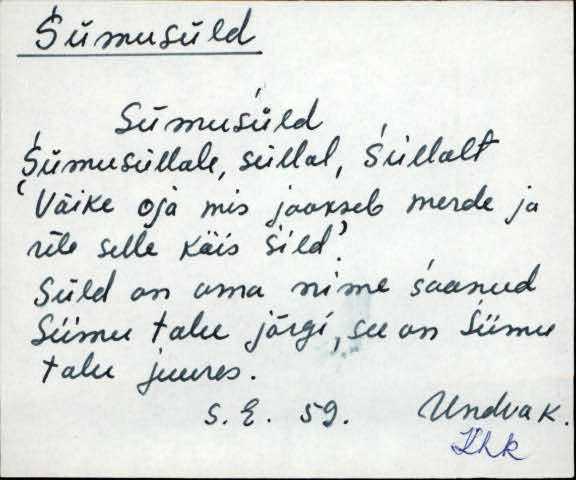 Śiimusüld
Siimusüld
Śiimusüllale, süllal, śüllalt
'Väike oja mis jookseb merde ja
üle selle käis sild'.
Süld on oma nime saanud
Siimu talu järgi, see on Siimu
talu juures.
S. E. 59. Undva k.
Khk